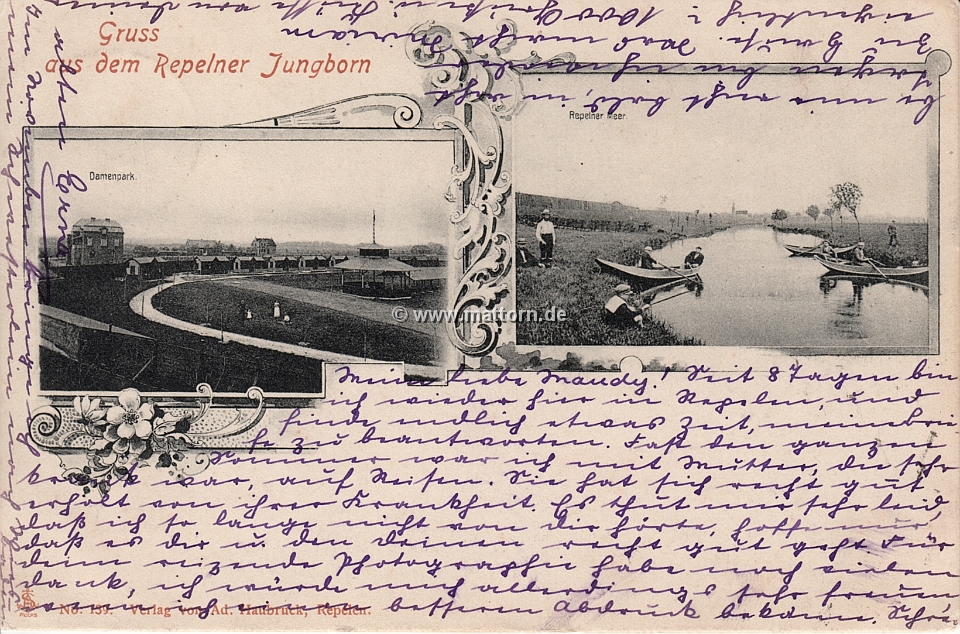 Gruss
aus dem Repelner Jungborn
Damenpark.
Repelner Meer.
© www.mattorn.de
Meine liebe Maudy! Seit 8 Tagen bin
ich wieder hier in Repelen, und
finde endlich etwas Zeit, meine Brie-
fe zu beantworten. Fast den ganzen
Sommer war ich mit Mutter, die sehr
krank war, auf Reisen. Sie hat sich recht gut
erholt von ihrer Krankheit. Es thut mir sehr leid,
daß ich so lange nicht von dir hörte, hoffe nur
daß es dir u. den deinen recht gut geht. Für
deine reizende Photographie habe noch vielen
dank, ich würde mich allerdings sehr freuen
wenn ich einen besseren Abdruck bekäme. Schrei-
be uns recht bald,
1000 Grüße u. Küsse von deiner
alten Erna
Im November
No. 139. Verlag von Ad. Haubruck, Repelen.